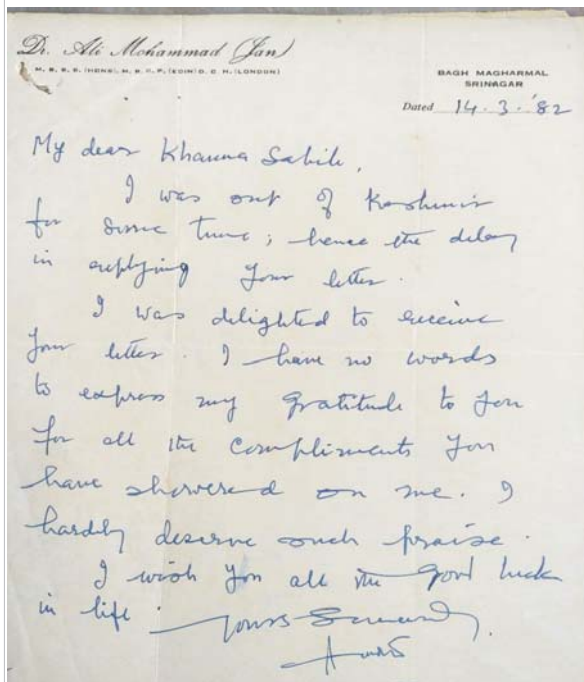 Dr. Ali Mohammad (Jan)
M. B. B. S. (HONS), M. R. C. P. (EDIN) D. C. H. (LONDON)
BAGH MAGHARMAL
SRINAGAR
Dated 14.3.'82
My dear Khanna Sahib,
I was out of Kashmir
for some time; hence the delay
in replying your letter.
I was delighted to receive
your letter. I have no words
to express my gratitude to you
for all the compliments you
have showered on me. I
hardly deserve such praise.
I wish you all the good luck
in life.
Yours Sincerely,